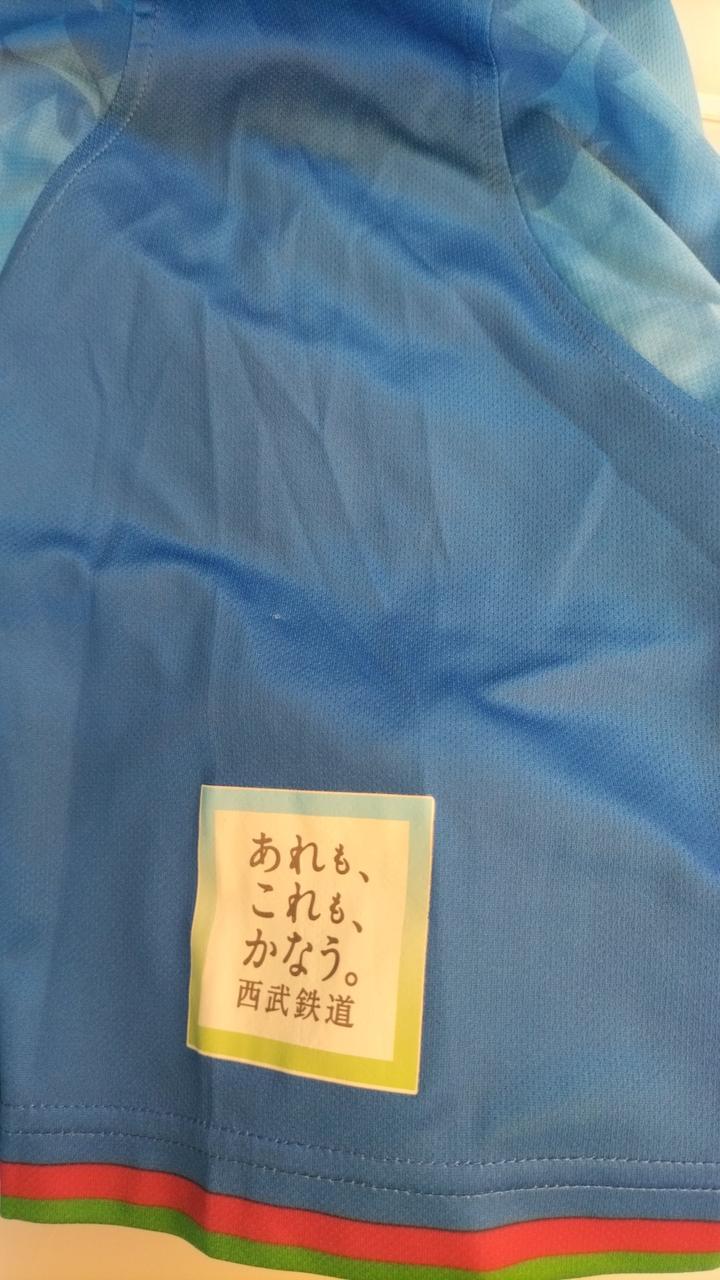 あれも、
これも、
かなう。
西武鉄道